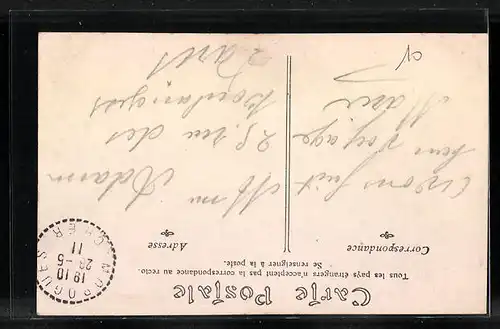 Carte Postale
Tous les pays étrangers n'acceptent pas la correspondance au recto.
Se renseigner à la poste.
Correspondance
Adresse
avons fait
bon voyage
Marie
Mme Adam
28. rue des
Boulangers
Paris
MOROGUES
CHER
19 10
22-5
11